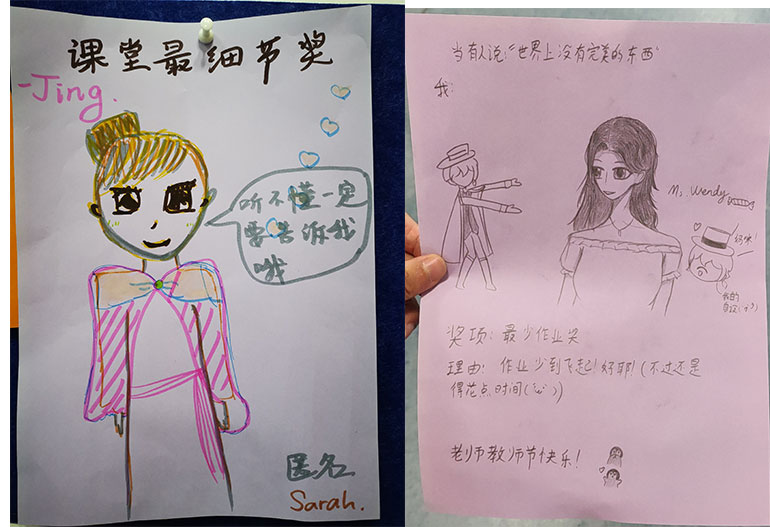 课堂最细节奖
-Jing.
听不懂一定
要告诉我
哦
匿名
Sarah.
当有人说:"世界上没有完美的东西"
我:
M, Wendy
好味!
我的
奖项: 最少作业奖
理由: 作业少到飞起! 好耶! (不过还是
得花点时间
老师教师节快乐!